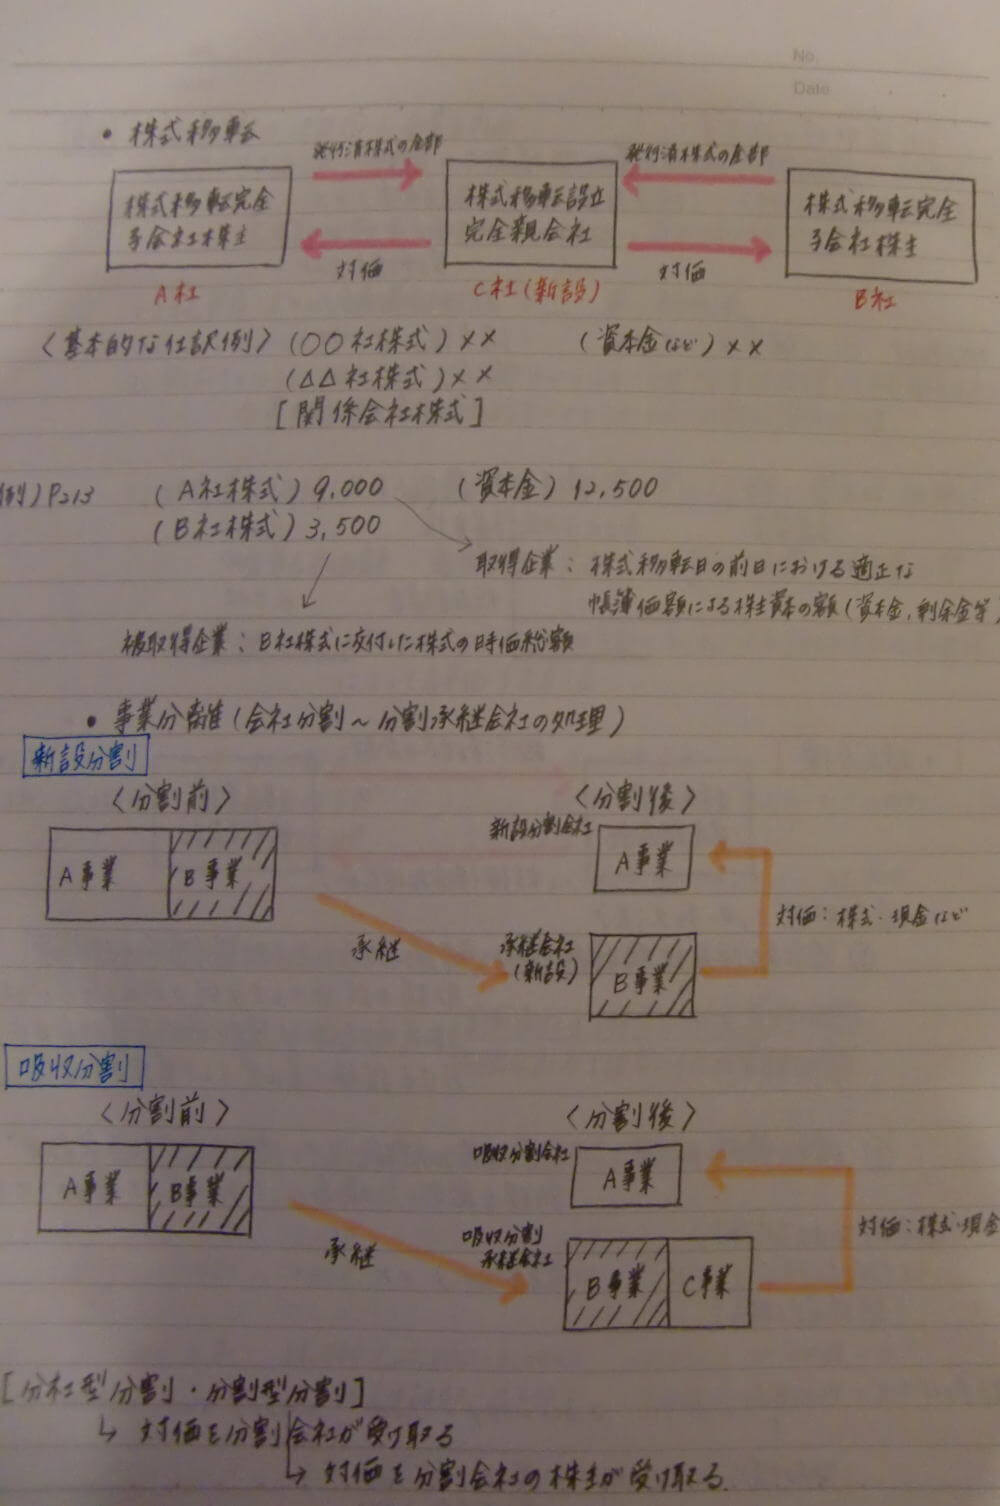 No.
Date
・株式移転
発行済株式の全部
発行済株式の全部
株式移転完全
子会社株主
株式移転設立
完全親会社
株式移転完全
子会社株主
対価
対価
A社
C社(新設)
B社
〈基本的な仕訳例〉(○○社株式)×× (資本金など)××
(△△社株式)××
[関係会社株式]
例)P213 (A社株式)9,000 (資本金)12,500
(B社株式)3,500
取得企業:株式移転日の前日における適正な
帳簿価額による株主資本の額(資本金,剰余金等)
被取得企業:B社株式に交付した株式の時価総額
・事業分離(会社分割〜分割承継会社の処理)
新設分割
〈分割前〉
〈分割後〉
新設分割会社
A事業
B事業
A事業
対価:株式・現金など
承継
承継会社
(新設)
B事業
吸収分割
〈分割前〉
〈分割後〉
吸収分割会社
A事業
B事業
A事業
対価:株式・現金
承継
吸収分割
承継会社
B事業
C事業
[分社型分割・分割型分割]
↳対価を分割会社が受け取る
↳対価を分割会社の株主が受け取る.